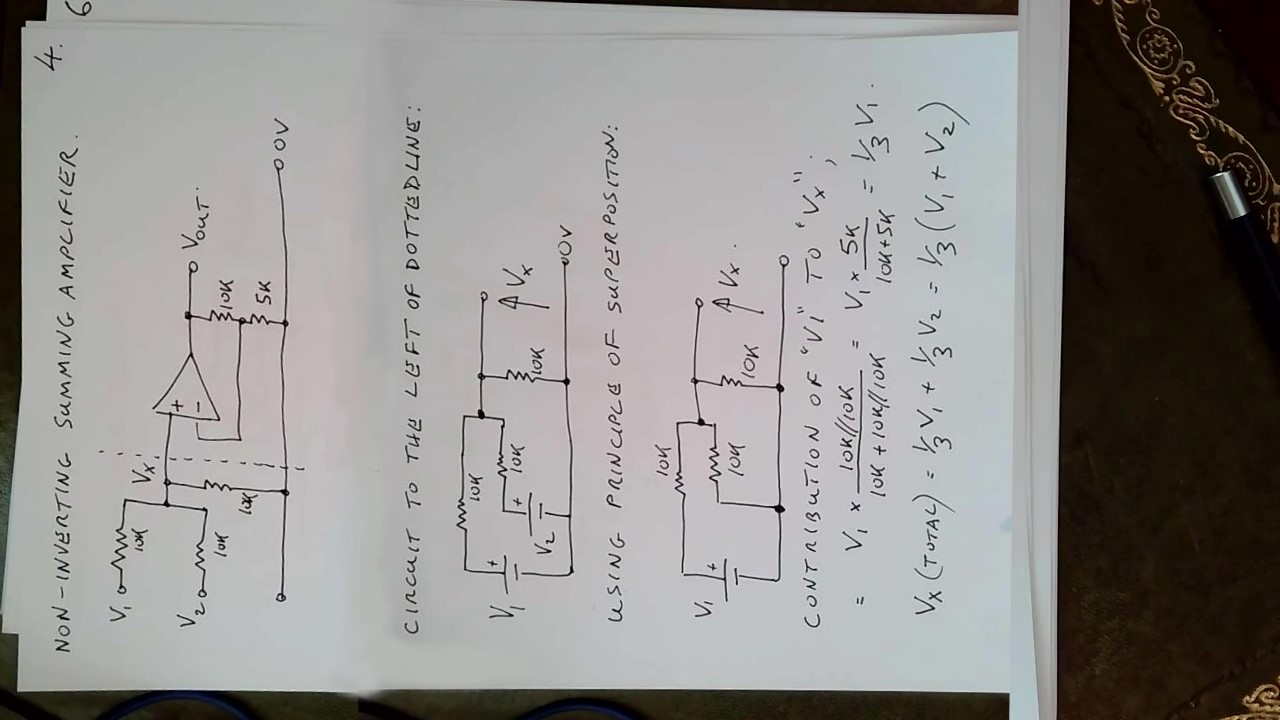 6
NON-INVERTING SUMMING AMPLIFIER. 4.
V1 10K VX + VOUT.
V2 10K 10K - 10K
5K
0V
CIRCUIT TO THE LEFT OF DOTTED LINE:
10K
V1 + 10K VX
V2 + 10K
0V
USING PRINCIPLE OF SUPERPOSITION:
10K
V1 + 10K 10K VX.
CONTRIBUTION OF "V1" TO "VX";
= V1 x 10K//10K / 10K + 10K//10K = V1 x 5K / 10K+5K = 1/3 V1.
VX (TOTAL) = 1/3 V1 + 1/3 V2 = 1/3 (V1 + V2)